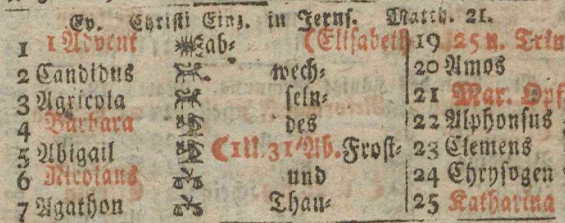 Ev. Christi Einz. in Jerus. Matth. 21.
1 1 Advent Ab- (Elisabeth 19 25 n. Trin
2 Candidus wech- 20 Amos
3 Agricola seln- 21 Mar. Opf
4 Barbara des 22 Alphonsus
5 Abigail (1U.31'Ab. Frost- 23 Clemens
6 Nicolaus und 24 Chrysogen
7 Agathon Thau- 25 Katharina